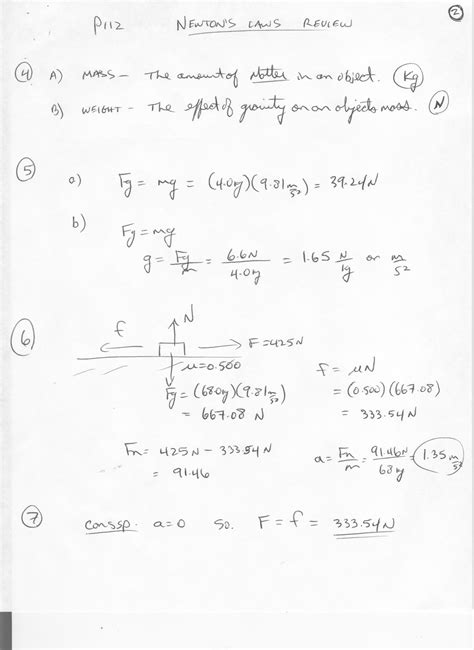 P112 NEWTON'S LAWS REVIEW ②
④ A) MASS – The amount of matter in an object. (Kg)
B) WEIGHT – The effect of gravity on an objects mass. (N)
⑤ a) Fg = mg = (4.0kg)(9.81 m/s²) = 39.24N
b) Fg = mg
g = Fg/m = 6.6N/4.0kg = 1.65 N/kg or m/s²
⑥ f N F = 425N
μ = 0.500
Fg = (68.0kg)(9.81 m/s²)
= 667.08 N
f = μN
= (0.500)(667.08)
= 333.54N
Fn = 425N – 333.54N
= 91.46
a = Fn/m = 91.46N/68kg = 1.35 m/s²
⑦ cons sp. a = 0 so. F = f = 333.54N